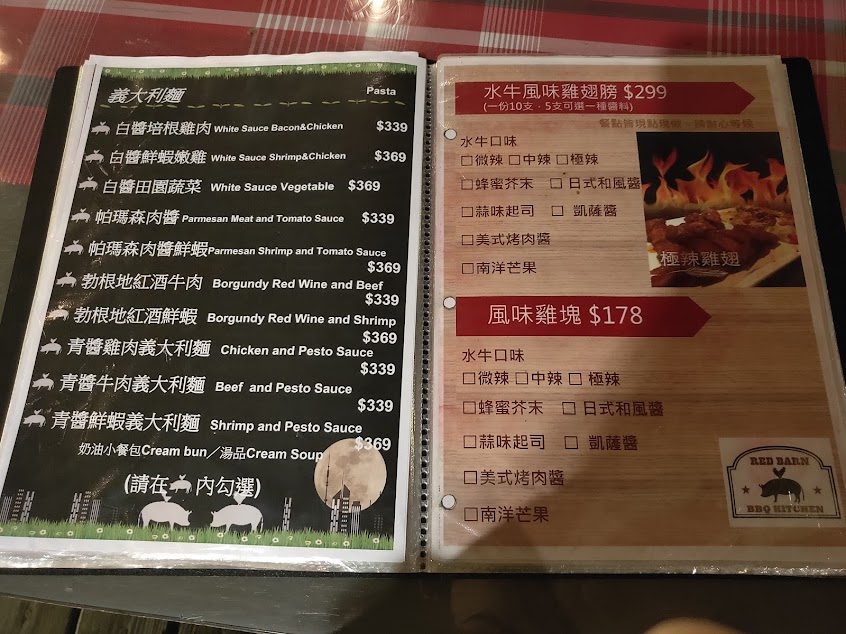 義大利麵 Pasta
白醬培根雞肉 White Sauce Bacon&Chicken $339
白醬鮮蝦嫩雞 White Sauce Shrimp&Chicken $369
白醬田園蔬菜 White Sauce Vegetable $369
帕瑪森肉醬 Parmesan Meat and Tomato Sauce $339
帕瑪森肉醬鮮蝦 Parmesan Shrimp and Tomato Sauce
$369
勃根地紅酒牛肉 Borgundy Red Wine and Beef
$339
勃根地紅酒鮮蝦 Borgundy Red Wine and Shrimp
$369
青醬雞肉義大利麵 Chicken and Pesto Sauce
$339
青醬牛肉義大利麵 Beef and Pesto Sauce
$339
青醬鮮蝦義大利麵 Shrimp and Pesto Sauce
$369
奶油小餐包Cream bun／湯品Cream Soup
(請在 內勾選)
水牛風味雞翅膀 $299
(一份10支．5支可選一種醬料)
餐點皆現點現做，請耐心等候
水牛口味
□微辣 □中辣 □極辣
□蜂蜜芥末 □日式和風醬
□蒜味起司 □ 凱薩醬
□美式烤肉醬
□南洋芒果
極辣雞翅
風味雞塊 $178
水牛口味
□微辣 □中辣 □ 極辣
□蜂蜜芥末 □ 日式和風醬
□蒜味起司 □ 凱薩醬
□美式烤肉醬
□南洋芒果
RED BARN
BBQ KITCHEN